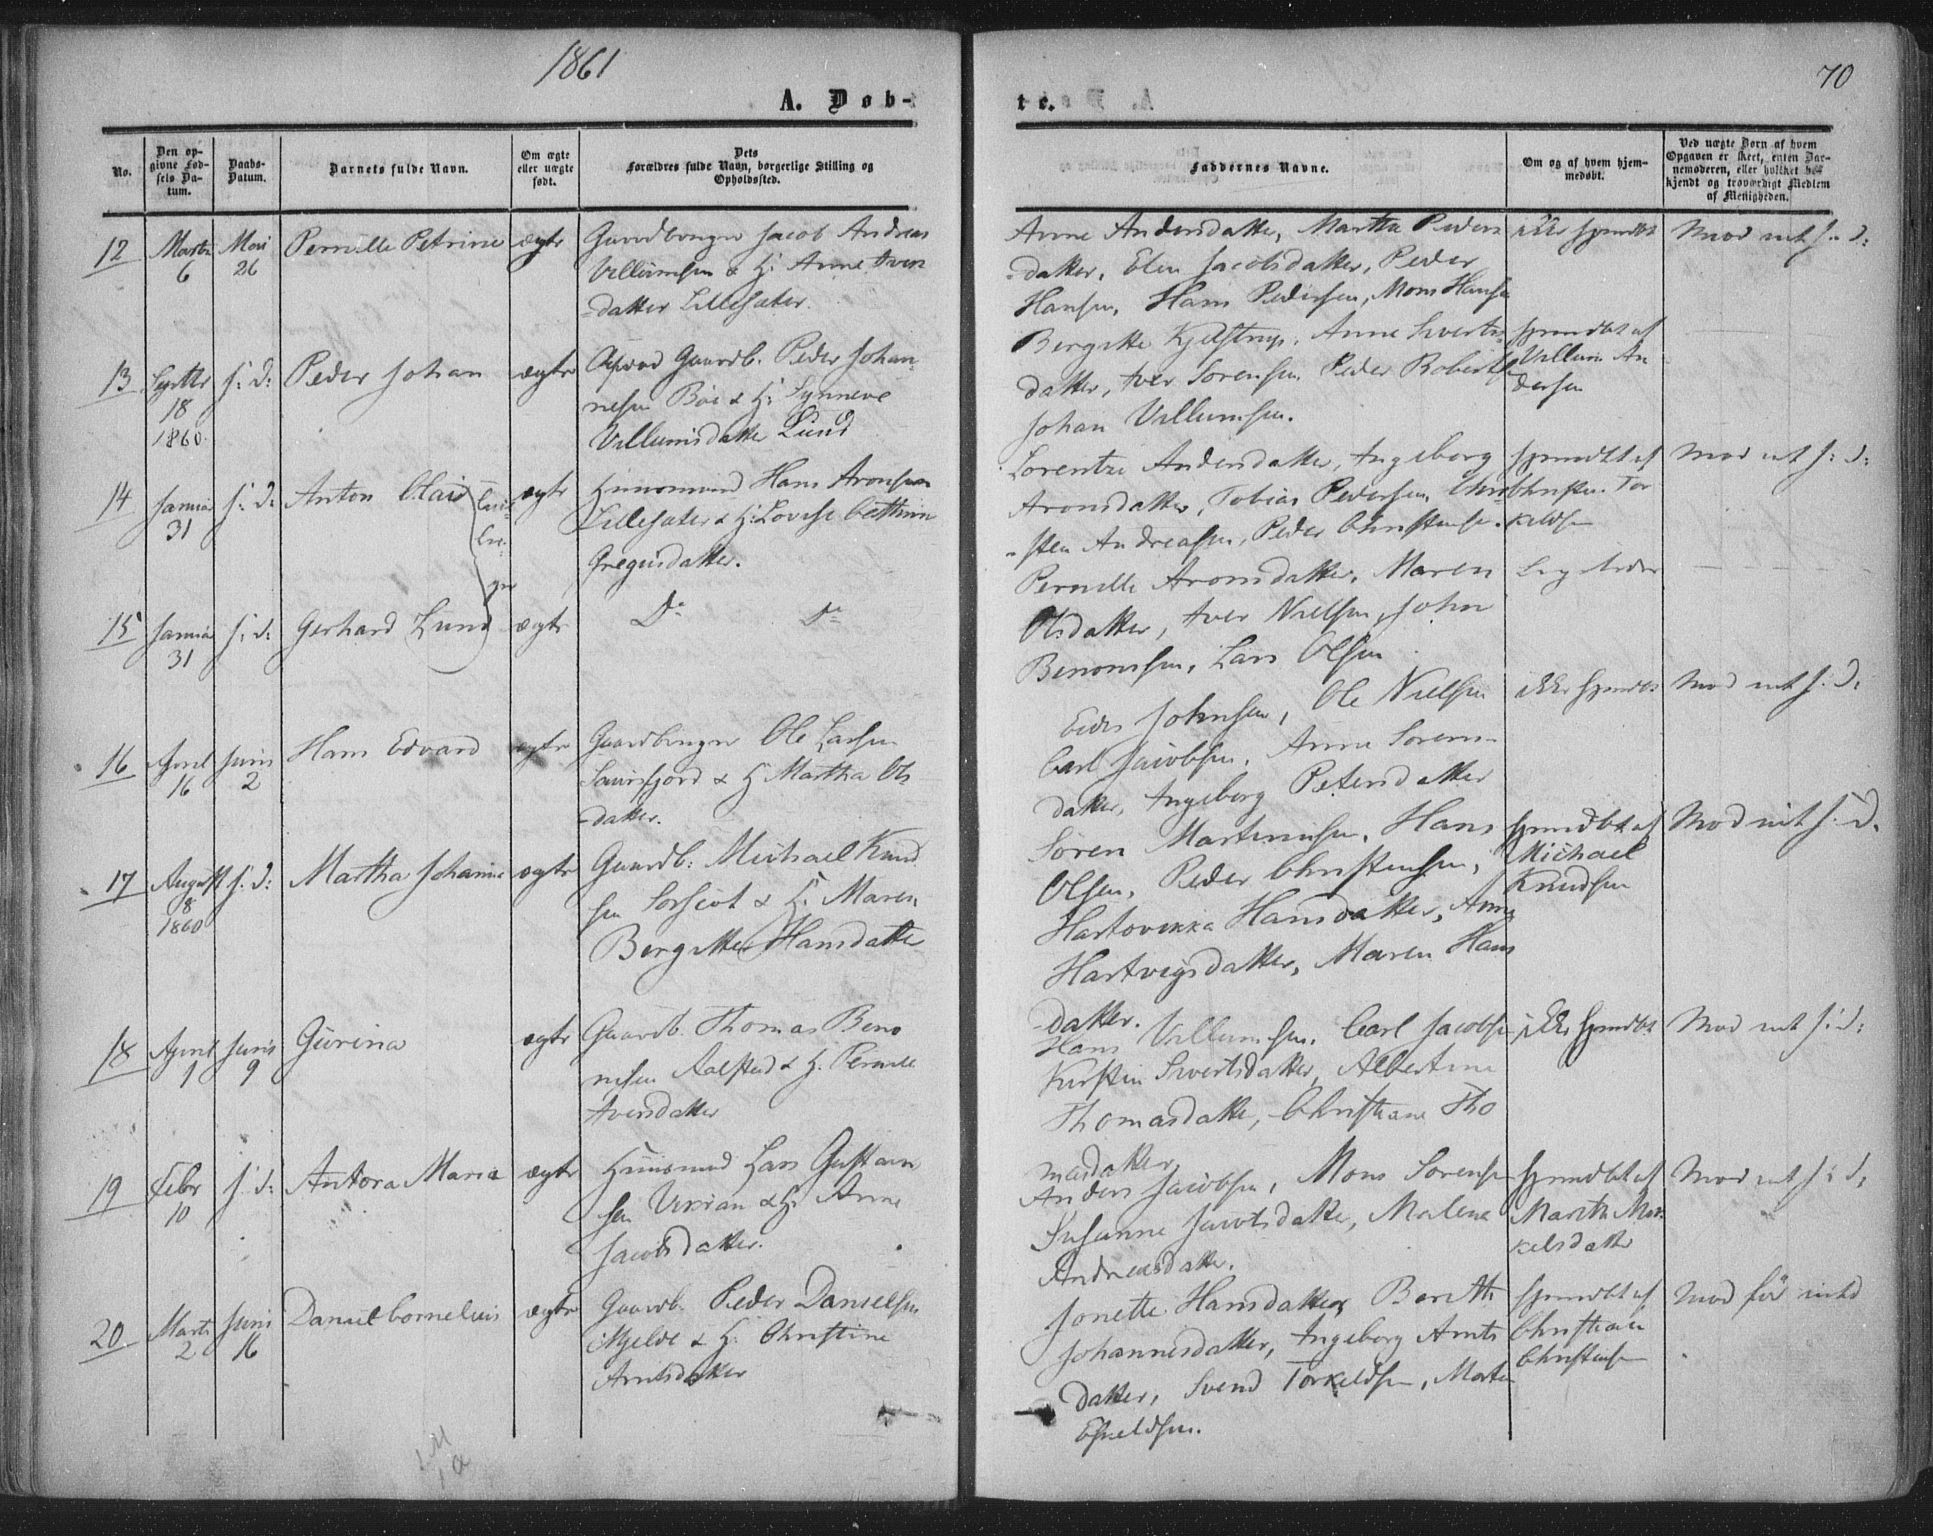 1861
70
A. Døb-
te.
No.
Den op-
givne Fød-
sels Da-
tum.
Daabs-
Datum.
Barnets fulde Navn.
Om ægte
eller uægte
født.
Dets
Forældres fulde Navn, borgerlige Stilling og
Opholdssted.
Faddernes Navne.
Om og af hvem hjem-
medøbt.
Ved uægte Børn af hvem
Opgaven er skeet, enten Bar-
nemoderen, eller hvilket be-
kjendt og troværdigt Medlem
af Menigheden.
12
Marts
6
Mai
26
Pernille Petrine
ægte
Gaardbruger Jacob Andreas
Villumsen & H. Anne Iver
-datter Lillesæter.
Anne Andersdatter, Martha Peders
-datter, Elen Jacobsdatter, Peder
Hansen, Hans Pedersen, Mons Hansen
ikke hjemdbt
13
Septbr
18
1860
s: d:
Peder Johan
ægte
Gaardb. Peder Johan-
nesen Bøe & H. Synneve
Villumsdatter Lund
Bergitte Kjelstrup, Anne Siverts
datter, Iver Sørensen, Peder Robertsen
Johan Villumsen.
hjemdbt af
Villum An
dersen
14
Januar
31
s: d:
Anton Claus
ægte
Huusmand Hans Aronsen
Lillesæter & H. Lovise Cathrine
Gregusdatter.
Lorentze Andersdatter, Ingeborg
Aronsdatter, Tobias Pedersen, Chri
-sten Andreasen, Peder Christensen.
hjemdbt af
Christen Tor
keldsen
15
Januar
31
s: d:
Gerhard Lund
ægte
Do Do
Pernille Aronsdatter, Maren
Olsdatter, Iver Nielsen, John
Benonisen, Lars Olsen
16
April
16
Juni
2
Hans Edvard
ægte
Gaardbruger Ole Larsen
& H. Martha Ols
-datter.
Johnsen, Ole Nielsen
Carl Jacobsen, Anne Sørens-
datter, Ingeborg Petersdatter
ikke hjemdbt
17
August
8
1860
s: d:
Martha Johanne
ægte
Gaardb: Michael Knud
sen & H. Maren
Bergitte Hansdatter
Søren Martinusen, Hans
Olsen, Peder Christensen,
Hartovikka Hansdatter, Anne
Hartvigsdatter, Maren Hans
datter.
hjemdbt af
Michael
Knudsen
18
April
1
Juni
9
Gurina
ægte
Gaardb. Thomas Beno
nisen Aalstad & H. Pernille
Iversdatter
Hans Villumsen, Carl Jacobsen
Kirstin Sivertsdatter, Albertine
Thomasdatter, Christiane Tho
masdatter
ikke hjemdbt
19
Febr
10
s: d:
Antora Maria
ægte
Huusmand Lars Gustav
sen & H. Anne
Jacobsdatter.
Anders Jacobsen, Mons Sørensen
Susanne Jacobsdatter, Malene
Andreasdatter.
hjemdbt af
Marith Mor
kelsdatter
20
Marts
2
Juni
16
Daniel Cornelius
ægte
Gaardb. Peder Danielsen
Mjelde & H. Christine
Arntsdatter
Jonette Hansdatter, Berith
Johannesdatter, Ingeborg Arnts
datter, Svend Torkeldsen, Morten
Eskeldsen.
hjemdbt af
Christian
Christensen